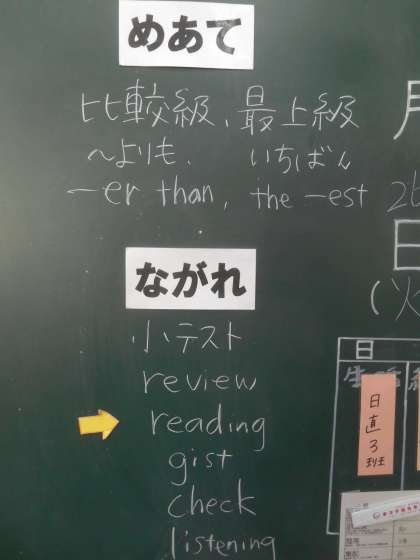 めあて
比較級、最上級
~よりも、 いちばん
-er than, the -est
ながれ
小テスト
review
reading
gist
check
listening
月
26
日
(火
日
日直3班